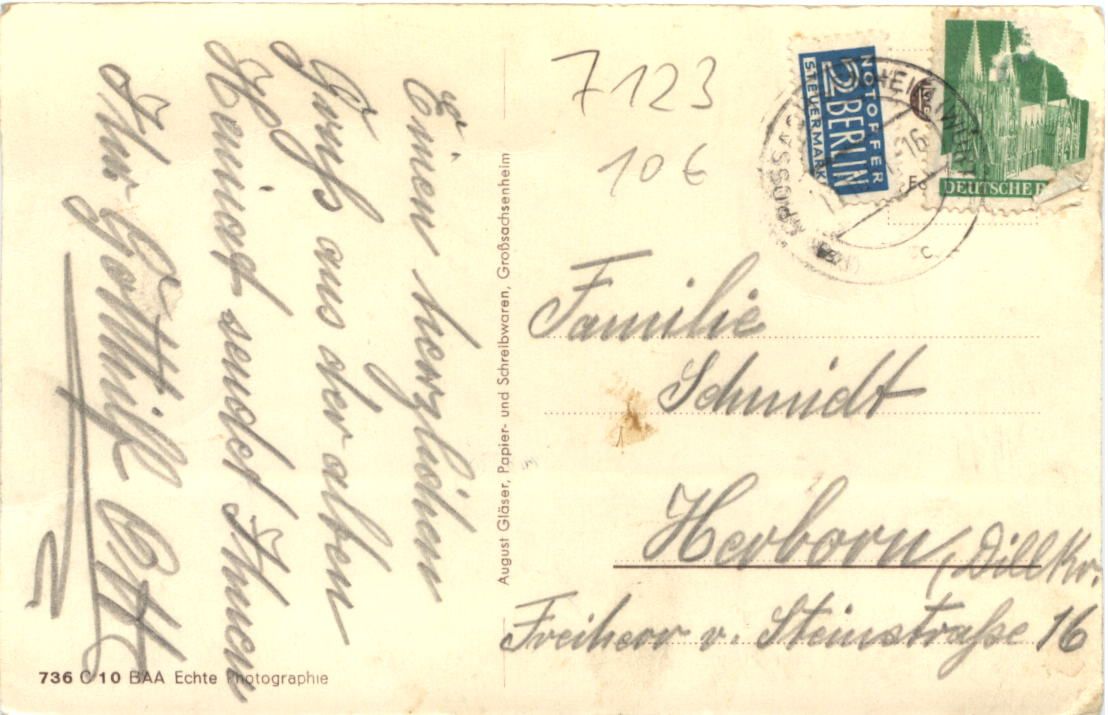 Einen herzlichen
Gruß aus der alten
Heimat sendet Ihnen
Ihr Gotthilf
736 C 10 BAA Echte Photographie
August Gläser, Papier- und Schreibwaren, Großsachsenheim
7123
10 €
NOTOPFER
2 BERLIN
STEUERMARKE
DEUTSCHE P
Familie
Schmidt
Herborn (Dillkr.
Freiherr v. Steinstraße 16